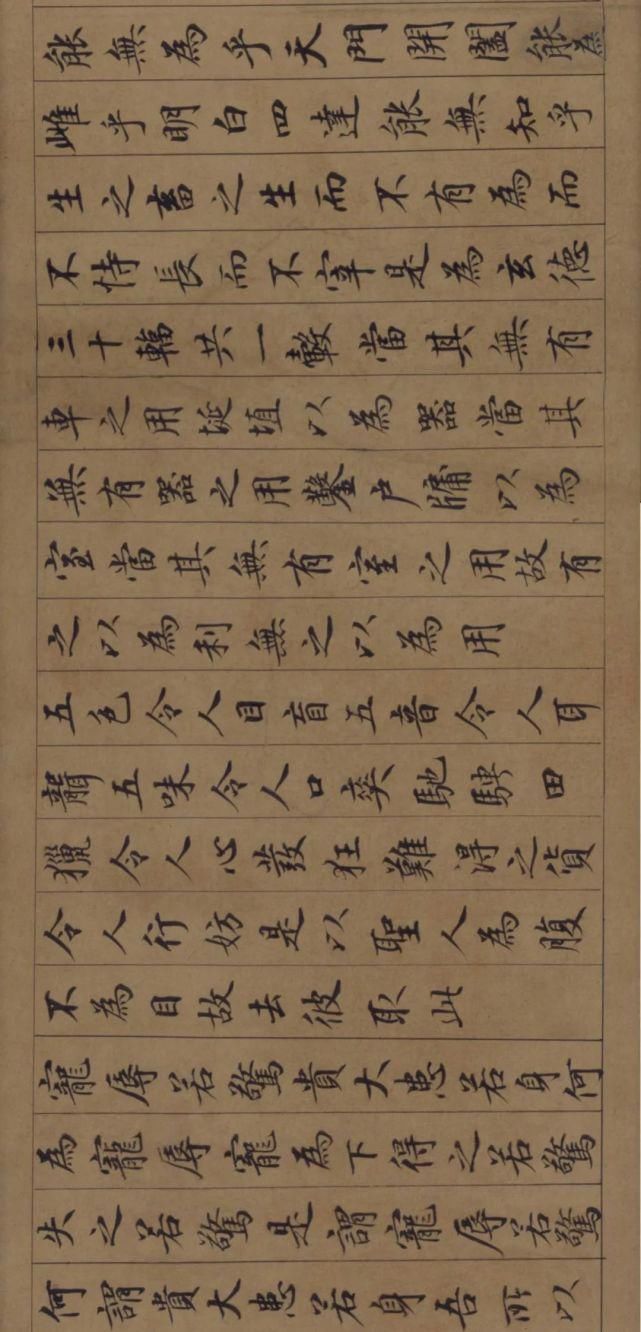 能無為乎天門開闔能為
雌乎明白四達能無知乎
生之畜之生而不有為而
不恃長而不宰是為玄德
三十輻共一轂當其無有
車之用埏埴以為器當其
無有器之用鑿户牖以為
室當其無有室之用故有
之以為利無之以為用
五色令人目盲五音令人耳
聾五味令人口爽馳騁田
獵令人心發狂難得之貨
令人行妨是以聖人為腹
不為目故去彼取此
寵辱若驚貴大患若身何
為寵辱寵為下得之若驚
失之若驚是謂寵辱若驚
何謂貴大患若身吾所以